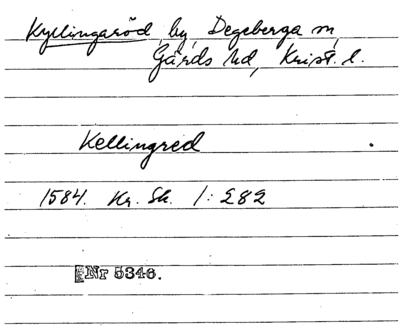 Kyllingaröd, by, Degeberga sn,
Gärds hd, Krist. l.
Kellingred
1584. Kr. Sk. 1: 282
Nr 5346.